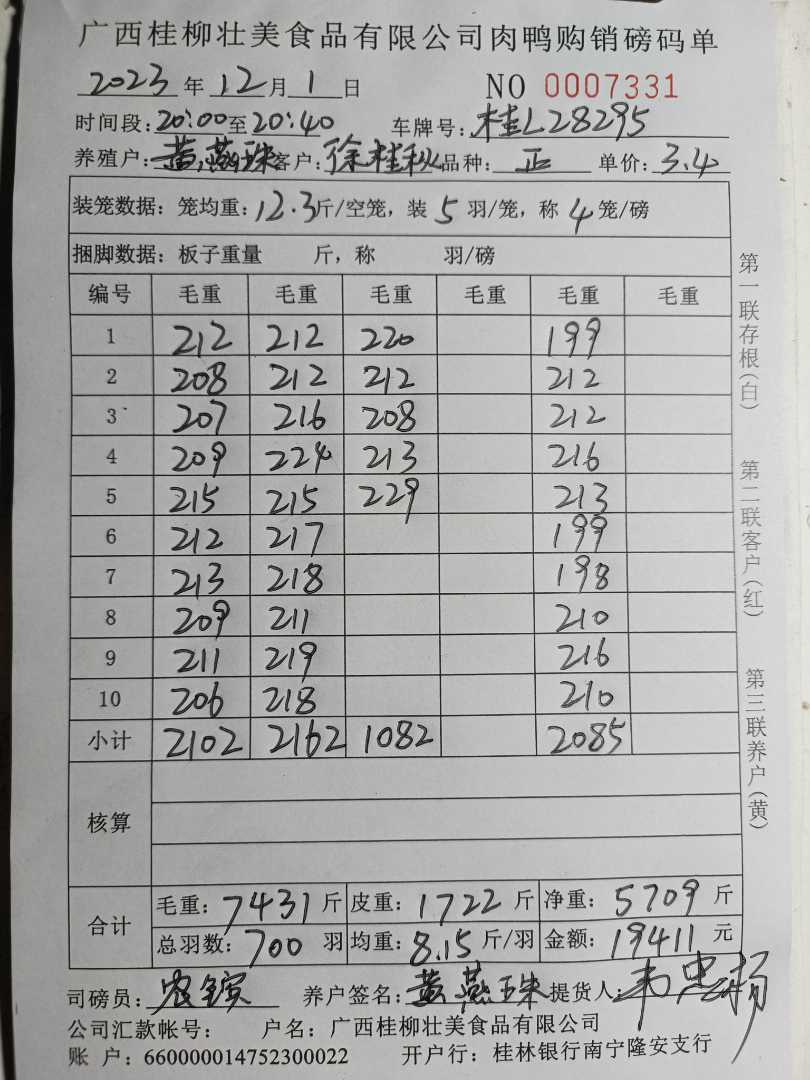 广西桂柳壮美食品有限公司肉鸭购销磅码单
2023 年 12 月 1 日 NO 0007331
时间段:20:00至20:40 车牌号:桂L28295
养殖户:黄燕珠 客户:徐桂秋 品种:正 单价:3.4
装笼数据:笼均重:12.3斤/空笼,装 5 羽/笼,称 4 笼/磅
捆脚数据:板子重量 斤,称 羽/磅
编号 毛重 毛重 毛重 毛重 毛重 毛重
1 212 212 220 199
2 208 212 212 212
3 207 216 208 212
4 209 224 213 216
5 215 215 229 213
6 212 217 199
7 213 218 198
8 209 211 210
9 211 219 216
10 206 218 210
小计 2102 2162 1082 2085
核算
合计
毛重:7431 斤 皮重:1722 斤 净重:5709 斤
总羽数:700 羽 均重:8.15 斤/羽 金额:19411 元
司磅员:农 养户签名:黄燕珠 提货人:韦忠杨
公司汇款帐号: 户名:广西桂柳壮美食品有限公司
账 户:660000014752300022 开户行:桂林银行南宁隆安支行
第一联存根(白)
第二联客户(红)
第三联养户(黄)